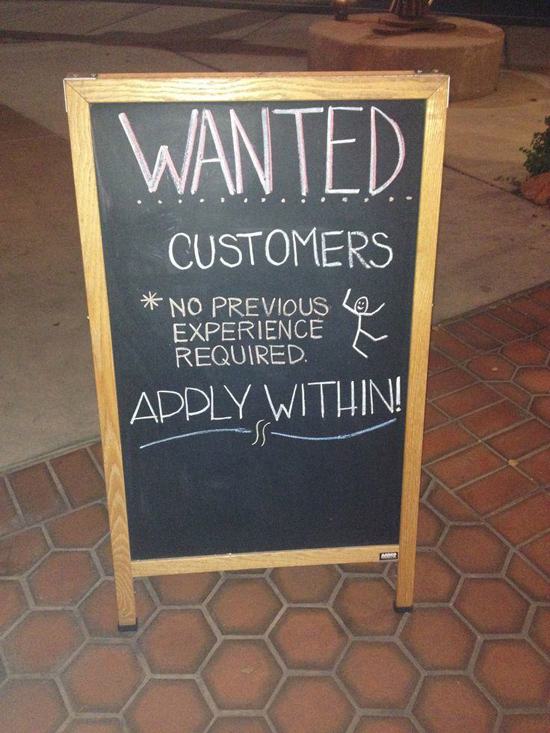 WANTED
CUSTOMERS
* NO PREVIOUS
EXPERIENCE
REQUIRED.
APPLY WITHIN!